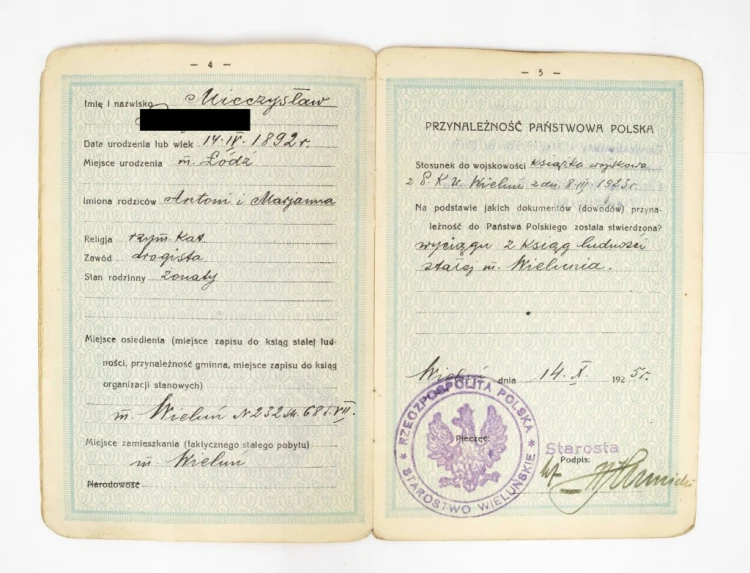 — 4 —
Imię i nazwisko Mieczysław
Data urodzenia lub wiek 14.IV.1892 r.
Miejsce urodzenia m. Łódź
Imiona rodziców Antoni i Marjanna
Religja rzym. kat.
Zawód drogista
Stan rodzinny żonaty
Miejsce osiedlenia (miejsce zapisu do ksiąg stałej lud-
ności, przynależność gminna, miejsce zapisu do ksiąg
organizacji stanowych)
m. Wieluń N 232 68 VII.
Miejsce zamieszkania (faktycznego stałego pobytu)
m Wieluń
Narodowość
— 5 —
PRZYNALEŻNOŚĆ PAŃSTWOWA POLSKA
Stosunek do wojskowości książka wojskowa
z P. K. U. Wieluń z dn. 8-III-1923 r.
Na podstawie jakich dokumentów (dowodów) przyna-
leżność do Państwa Polskiego została stwierdzona?
wyciągu z ksiąg ludności
stałej m. Wielunia.
Wieluń dnia 14. X 1925 r.
RZECZPOSPOLITA POLSKA
STAROSTWO WIELUŃSKIE
Pieczęć:
Starosta
Podpis: